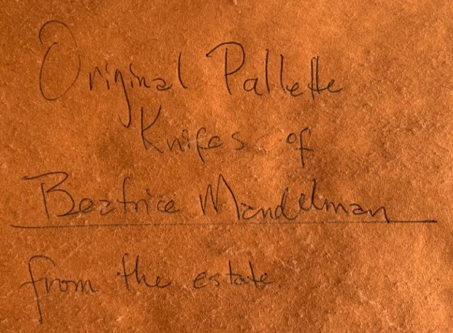 Original Pallette
Knifes of
Beatrice Mandelman
from the estate